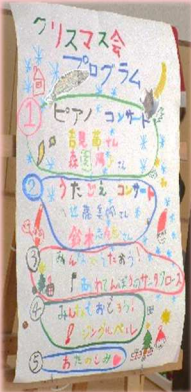 クリスマス会
プログラム
① ピアノ コンサート
さん
さん
② うたごえ コンサート
さん
鈴木 さん
③ みんなでうたおう!
あわてんぼうのサンタクロース
④ みんなでおどろう。
ジングルベル
⑤ おたのしみ